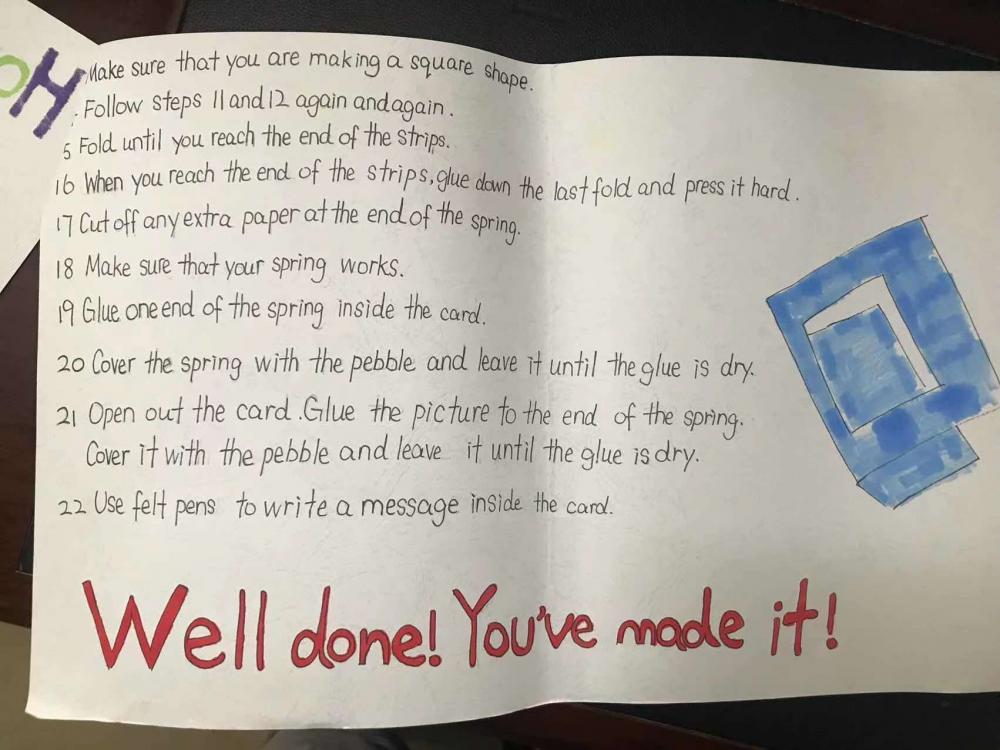 OH
Make sure that you are making a square shape.
Follow steps 11 and 12 again and again.
5 Fold until you reach the end of the strips.
16 When you reach the end of the strips, glue down the last fold and press it hard.
17 Cut off any extra paper at the end of the spring.
18 Make sure that your spring works.
19 Glue one end of the spring inside the card.
20 Cover the spring with the pebble and leave it until the glue is dry.
21 Open out the card. Glue the picture to the end of the spring.
Cover it with the pebble and leave it until the glue is dry.
22 Use felt pens to write a message inside the card.
Well done! You've made it!